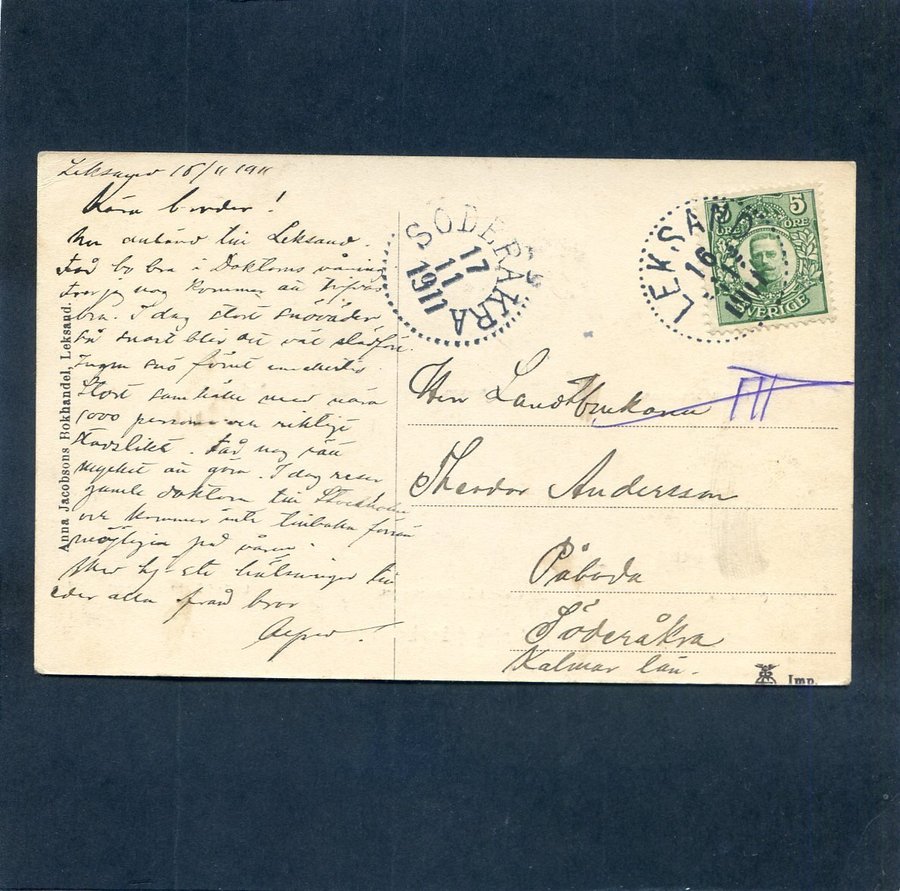 Leksand 15/11 1911
Kära broder!
Nu anländ till Leksand.
Får bo bra i Doktorns våning
tror jag nog kommer att trifvas
bra. I dag stort snöväder
så snart blir det väl slädföre.
Ingen snö förut emellertid.
Stort samhälle med nära
1000 personer och riktigt
stadslikt. Får nog rätt
mycket att göra. I dag reser
gamle doktorn till Stockholm
och kommer inte tillbaka förrän
möjligen på våren.
Med hälsningar till
eder alla från bror
Alfred.
Anna Jacobsons Bokhandel, Leksand
SÖDERÅKRA
17
11
1911
LEKSAND
16
1911
5
ÖRE ÖRE
SVERIGE
Herr Landtbrukaren
Theodor Andersson
Påboda
Söderåkra
Kalmar län.
Imp.